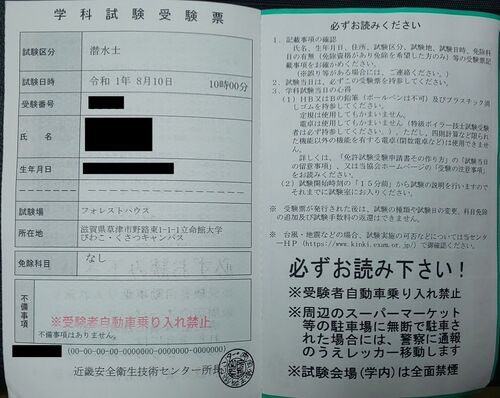 学科試験受験票
試験区分 潜水士
試験日時 令和 1年 8月10日 10時00分
受験番号
氏名
生年月日
試験場 フォレストハウス
所在地 滋賀県草津市野路東1-1-1立命館大学
びわこ・くさつキャンパス
免除科目 なし
不備事項
※受験者自動車乗り入れ禁止
不備事項はありません。
(00-00-00-00-0000000-0000-0000000)
近畿安全衛生技術センター所長
必ずお読みください
1．記載事項の確認
氏名、生年月日、住所、試験区分、試験地、試験日時、免除科
目の有無（免除資格があり免除を希望した方のみ）等の受験票記
載事項をお確かめください。
（※誤り等がある場合には、ご連絡ください。）
2．試験当日は、必ずこの受験票を持参してください。
3．学科試験当日の心得
（1）HB又はBの鉛筆（ボールペンは不可）及びプラスチック消
しゴムを持参してください。
定規は使用してもかまいません。
電卓は使用してもかまいません（特級ボイラー技士試験受験
者は必ず持参してください。）。ただし、四則計算など限られ
た機能以外の機能を有する電卓（関数電卓など）は使用できませ
ん。
詳しくは、「免許試験受験申請書その作り方」の「試験当日
の留意事項」、又は当協会ホームページの「受験の注意事項」
をお読みください。
（2）試験開始時刻の「15分前」から試験の説明を行いますので
それまでに試験室にお入りください。
※ 受験票が発行された後は、試験の種類や試験日の変更、科目免除
の追加及び試験手数料の返還はできません。
※ 台風・地震などの場合、試験実施の可否などについては当センタ
ーHP（https://www.kinki.exam.or.jp/）で御確認ください。
必ずお読み下さい！
※受験者自動車乗り入れ禁止
※周辺のスーパーマーケット
等の駐車場に無断で駐車さ
れた場合には、警察に通報
のうえレッカー移動します
※試験会場(学内)は全面禁煙